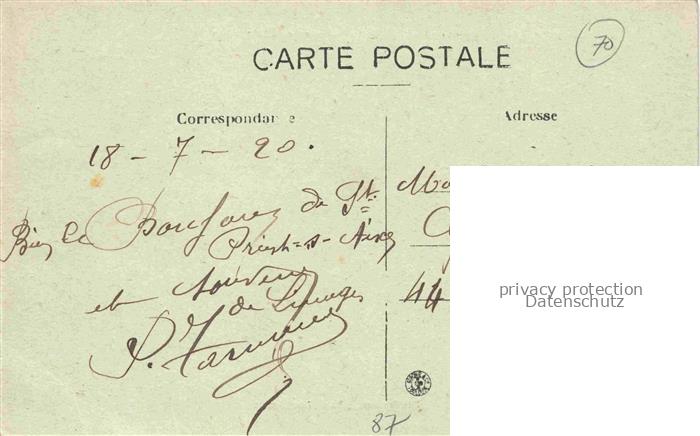 70
CARTE POSTALE
Correspondance
Adresse
18 - 7 - 20.
Bien le Bonjour de St
Priest-s-Aixe
et Souvenir
de Limoges
44
privacy protection
Datenschutz
87